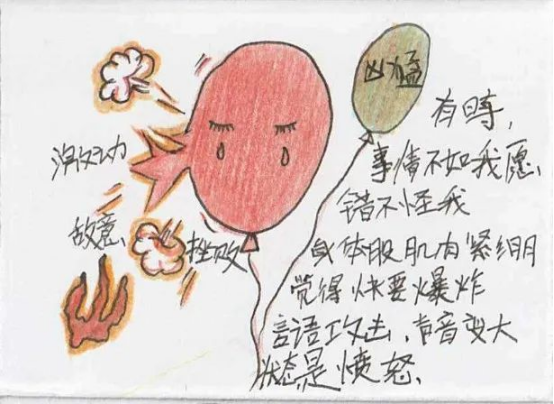 凶猛
有時,
事情不如我愿,
錯不怪我
敌意
挫败
身体肌肉紧绷
觉得快要爆炸
言語攻击,声音变大
状态是愤怒.